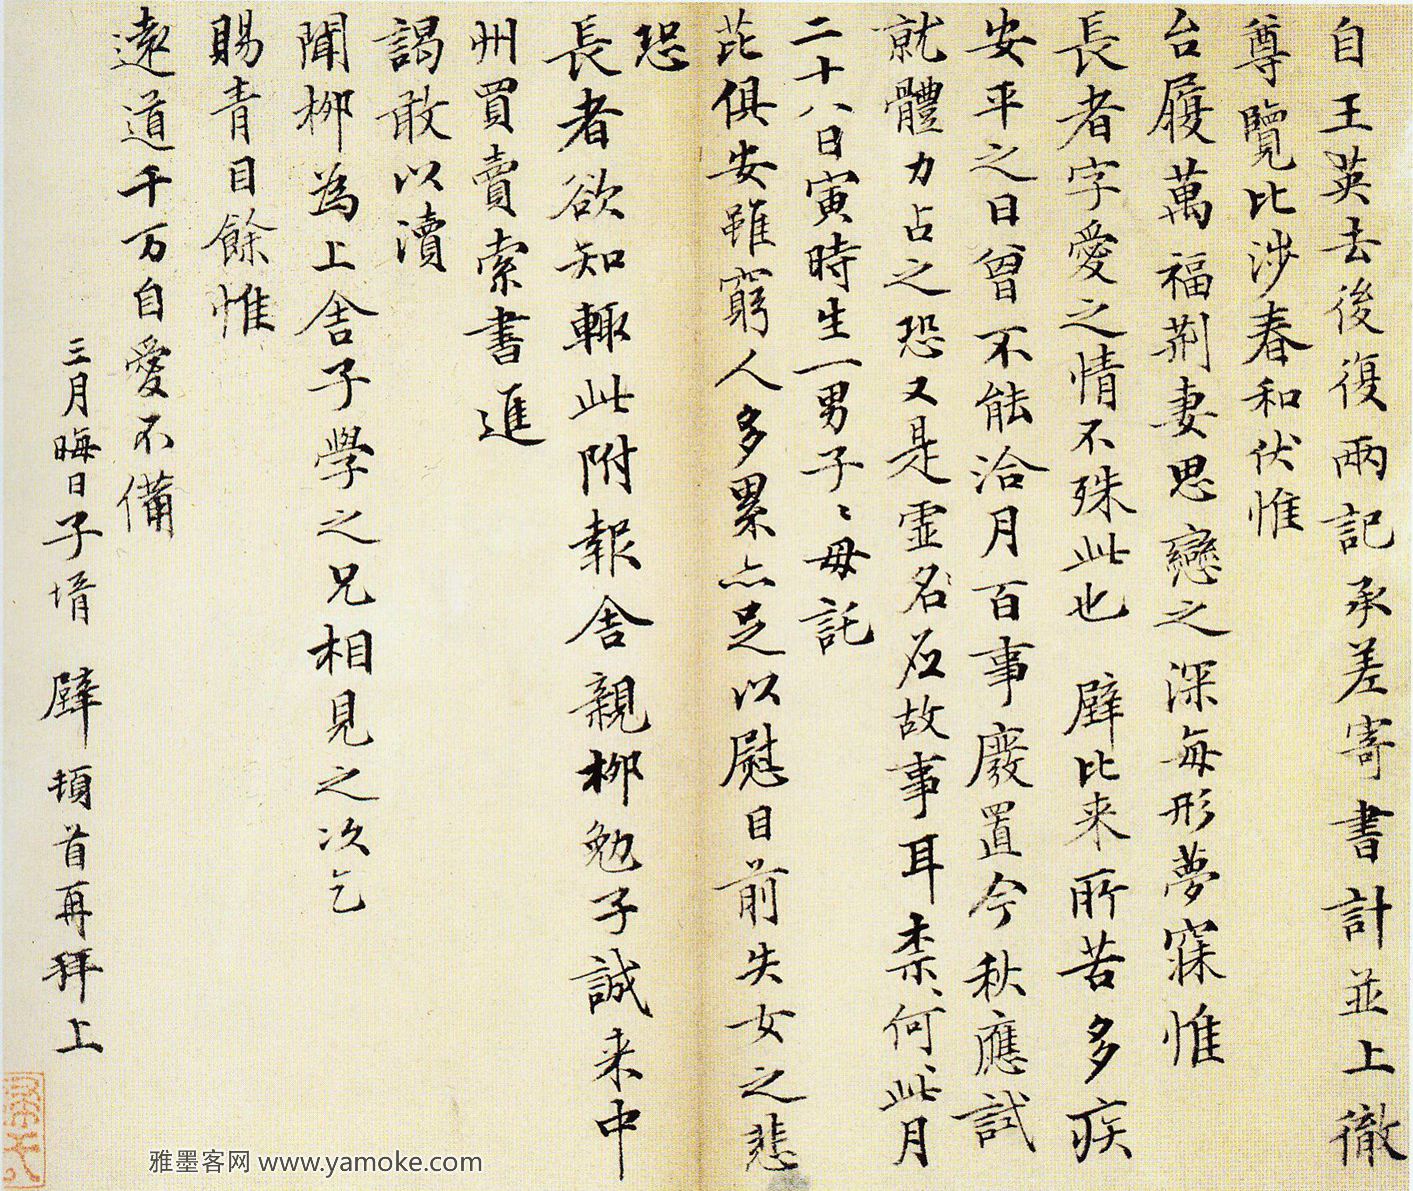 自王英去後復兩記承差寄書計並上徹
尊覽比涉春和伏惟
台履萬福荊妻思戀之深每形夢寐惟
長者字愛之情不殊此也 辟比来所苦多疾
安平之日曾不能洽月百事廢置今秋應試
就體力占之恐又是虛名應故事耳柰何柰何此月
二十八日寅時生一男子〻母託
芘俱安雖窮人多累亦足以慰目前失女之悲
恐
長者欲知輒此附報舍親柳勉子誠来中
州買賣索書進
謁敢以瀆
聞柳為上舍子學之兄相見之次乞
賜青目餘惟
遠道千万自愛不備
三月晦日子壻 辟 頓首再拜上
雅墨客网 www.yamoke.com